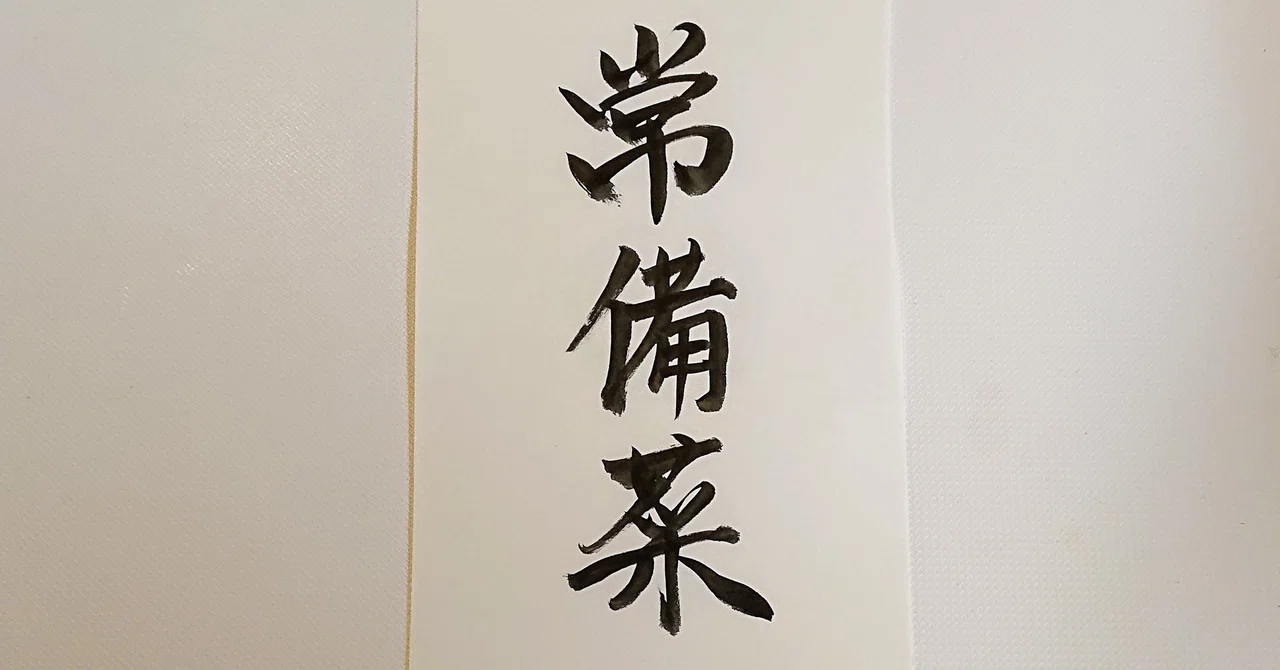 常備菜